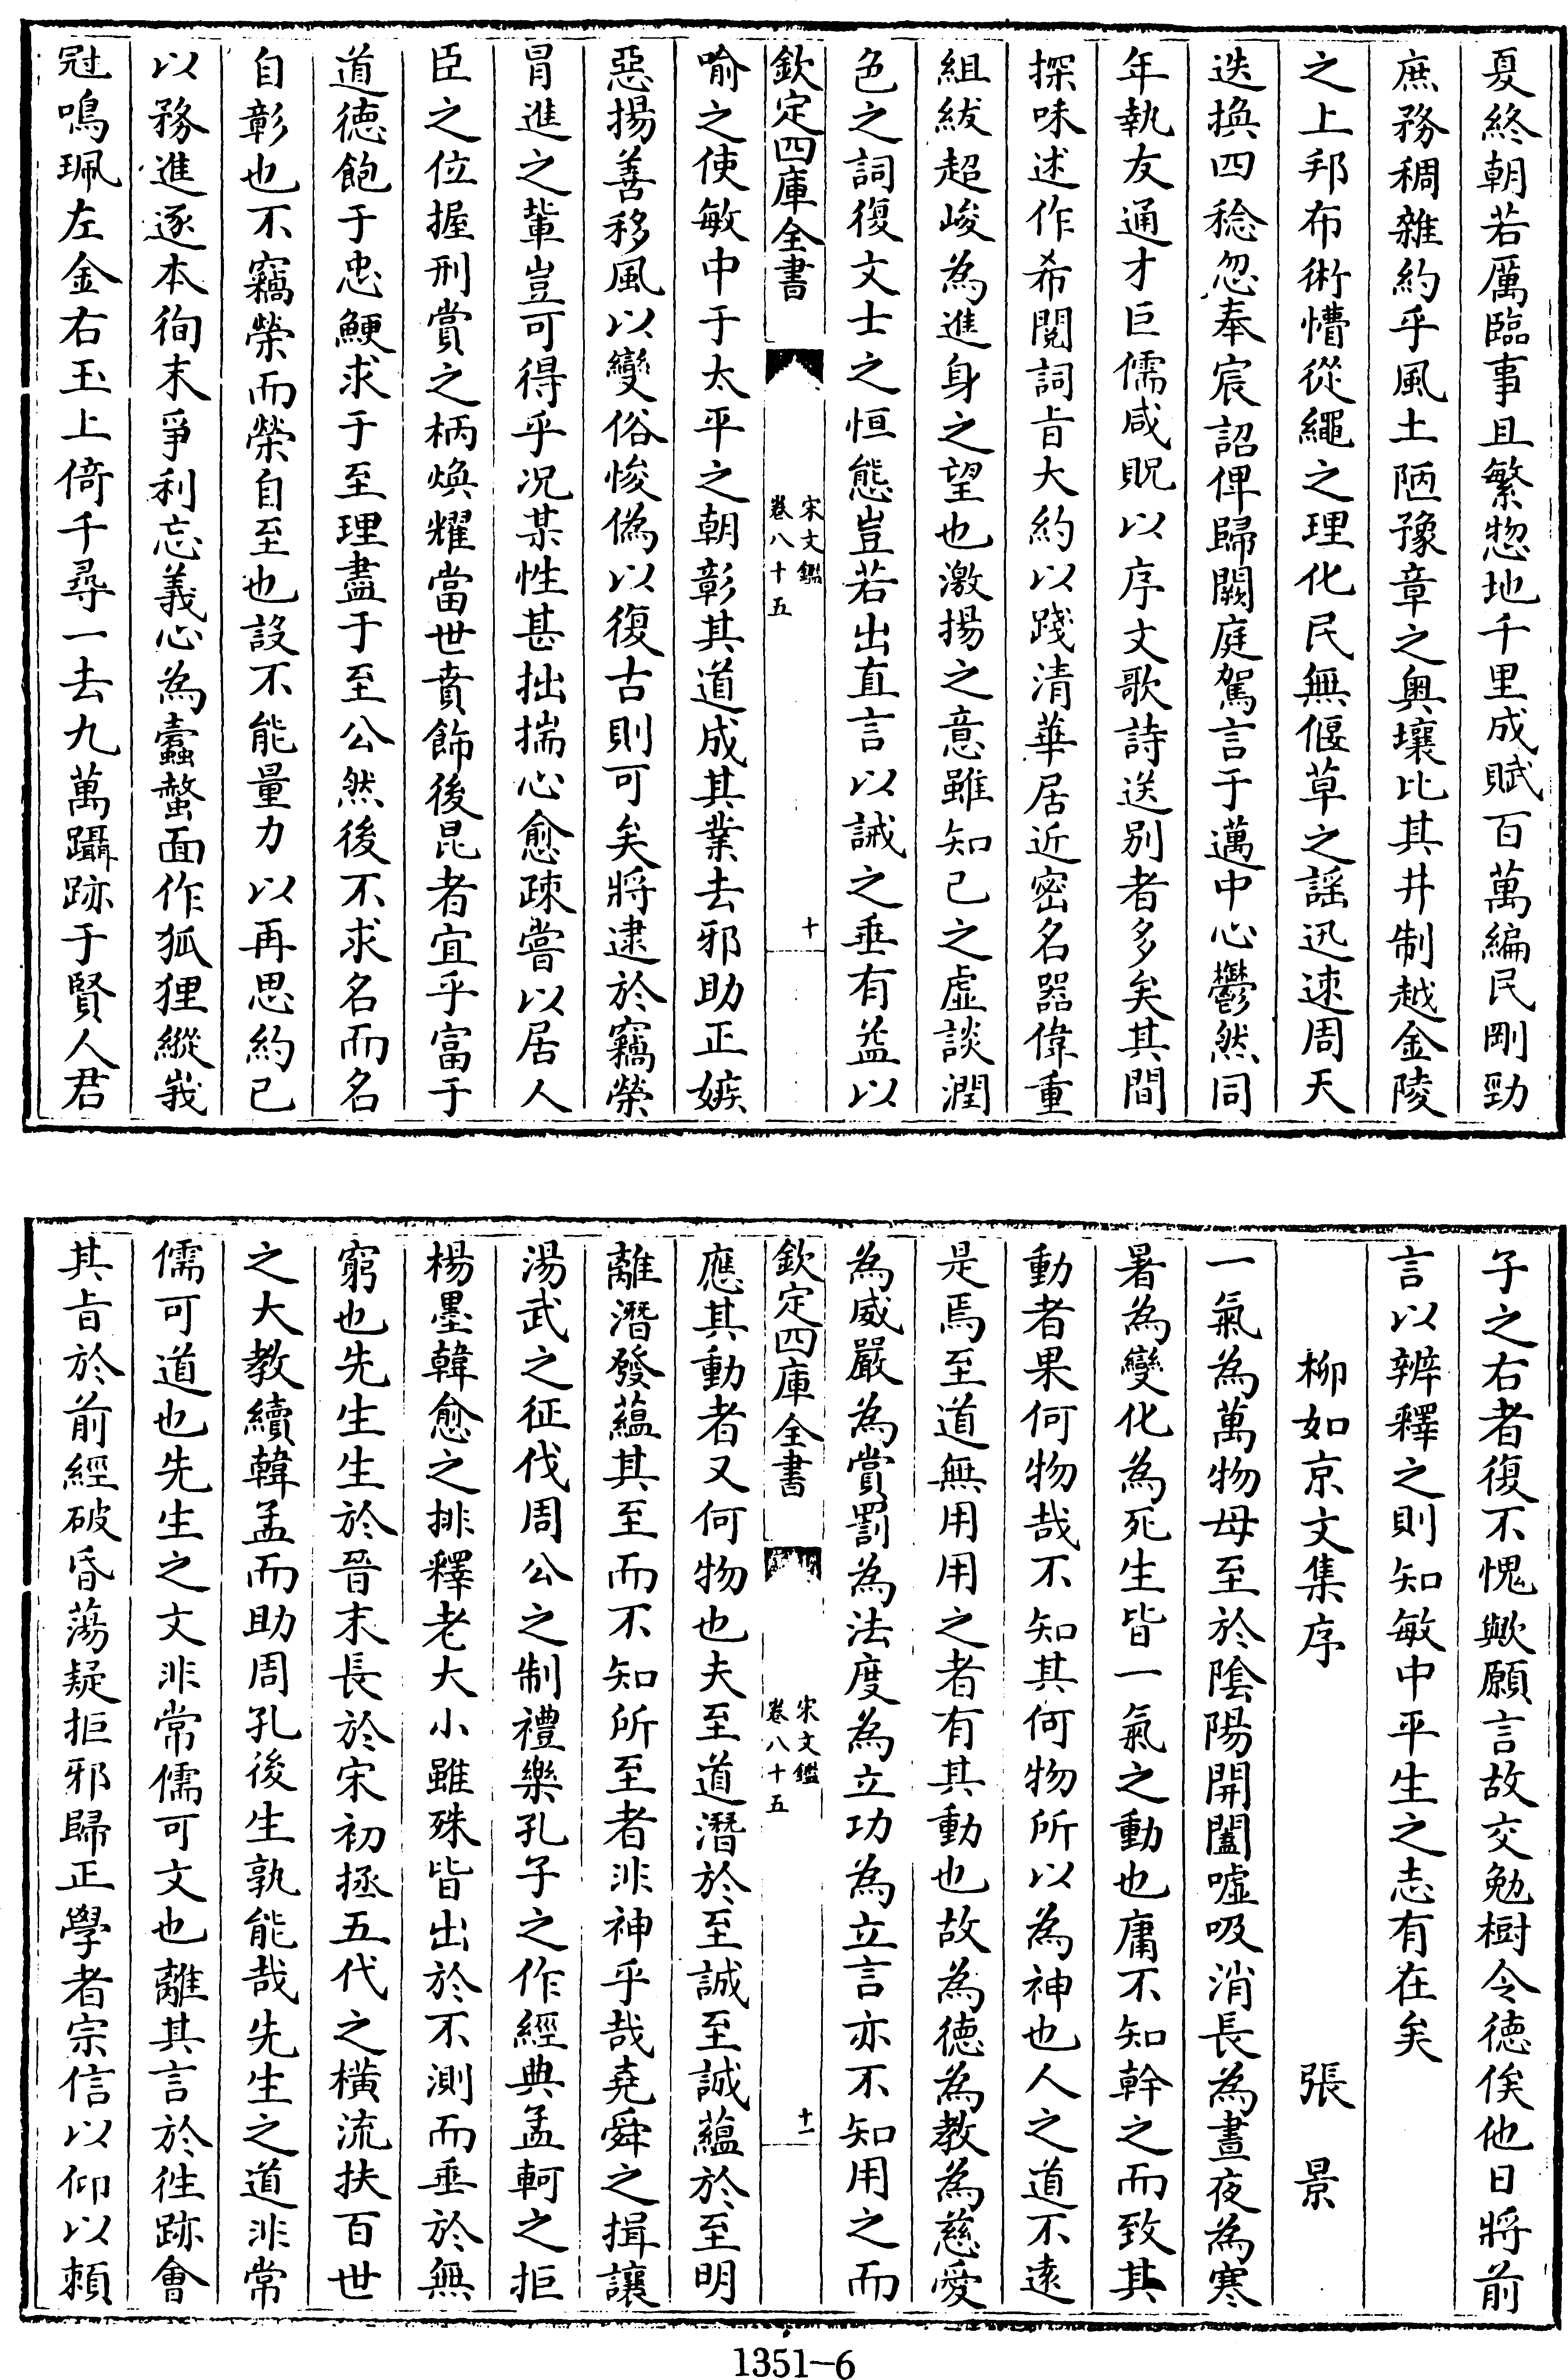 夏終朝若厲臨事且繁惣地千里成賦百萬編民剛勁
庶務稠雜約乎風土陋豫章之奥壤比其井制越金陵
之上邦布術慒從繩之理化民無偃草之謡迅速周天
迭換四稔忽奉宸詔俾歸闕庭駕言于邁中心鬱然同
年執友通才巨儒咸貺以序文歌詩送别者多矣其間
探味述作希閲詞㫖大約以踐清華居近密名器偉重
組紱超峻為進身之望也激揚之意雖知已之虚談潤
色之詞復文士之恒態豈若出直言以誡之垂有益以
欽定四庫全書
宋文鑑
卷八十五
十
喻之使敏中于太平之朝彰其道成其業去邪助正嫉
惡揚善移風以變俗悛偽以復古則可矣將逮於竊榮
冐進之輩豈可得乎况某性甚拙揣心愈疎嘗以居人
臣之位握刑賞之柄煥耀當世賁飾後昆者宜乎富于
道徳飽于忠鯁求于至理盡于至公然後不求名而名
自彰也不竊榮而榮自至也設不能量力以再思約已
以務進逐本徇末爭利忘義心為蠧螫面作狐狸縱峩
冠鳴珮左金右玉上倚千尋一去九萬躡跡于賢人君
子之右者復不愧歟願言故交勉樹令徳俟他日將前
言以辨釋之則知敏中平生之志有在矣
柳如京文集序 張景
一氣為萬物母至於陰陽開闔嘘吸消長為晝夜為寒
暑為變化為死生皆一氣之動也庸不知幹之而致其
動者果何物哉不知其何物所以為神也人之道不逺
是焉至道無用用之者有其動也故為徳為教為慈愛
為威嚴為賞罰為法度為立功為立言亦不知用之而
欽定四庫全書
宋文鑑
卷八十五
十一
應其動者又何物也夫至道潛於至誠至誠藴於至明
離潛發藴其至而不知所至者非神乎哉堯舜之揖讓
湯武之征伐周公之制禮樂孔子之作經典孟軻之拒
楊墨韓愈之排釋老大小雖殊皆出於不測而垂於無
窮也先生生於晉末長於宋初拯五代之横流扶百世
之大教續韓孟而助周孔後生孰能哉先生之道非常
儒可道也先生之文非常儒可文也離其言於徃跡會
其㫖於前經破昏蕩疑拒邪歸正學者宗信以仰以頼
1351-6